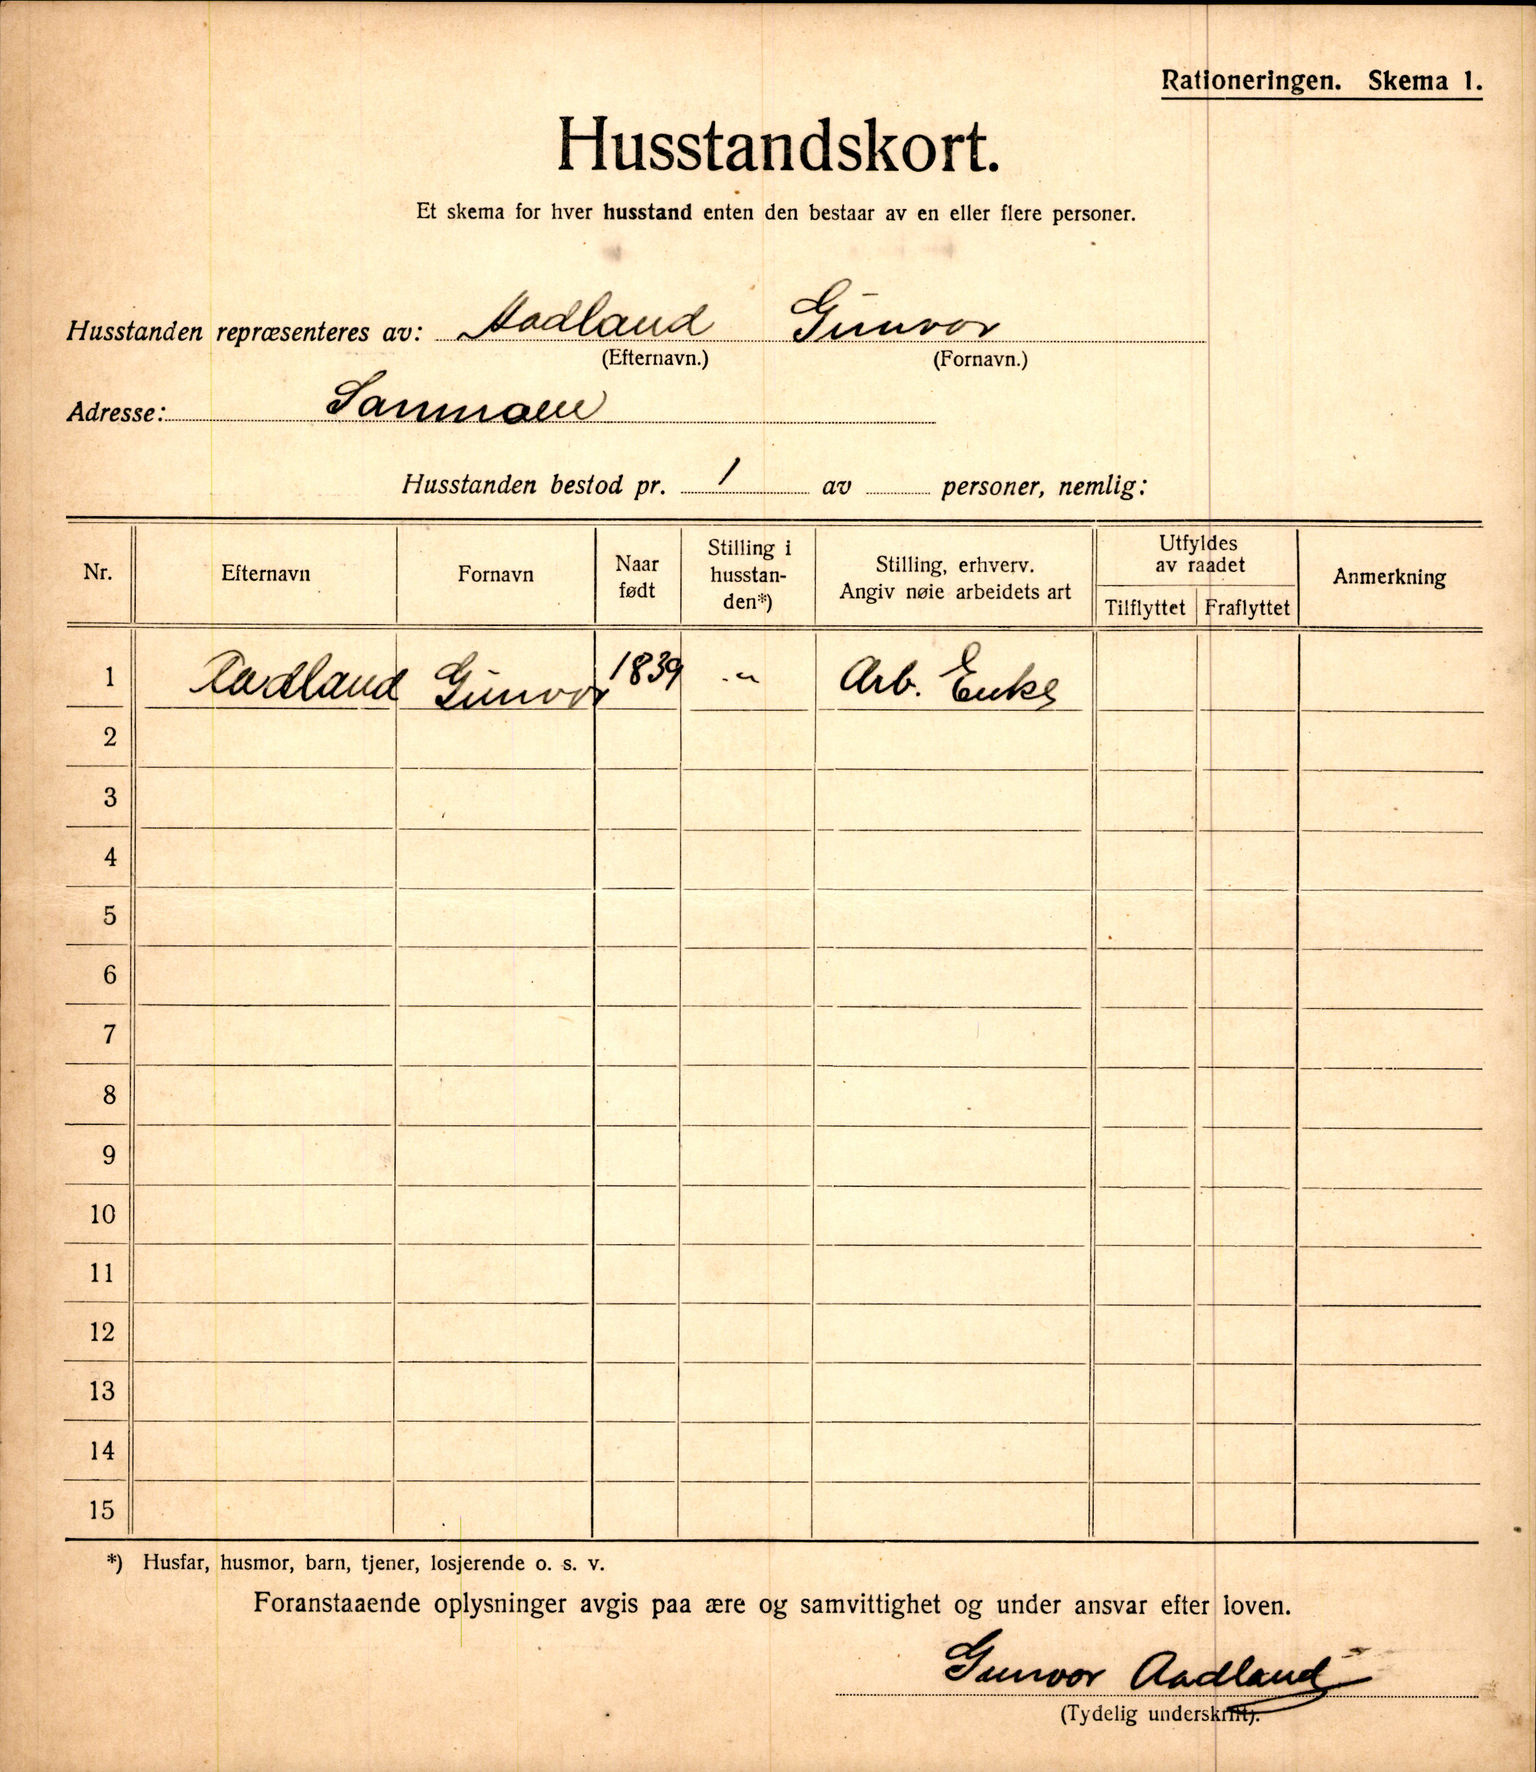 Rationeringen. Skema 1.
Husstandskort.
Et skema for hver husstand enten den bestaar av en eller flere personer.
Husstanden repræsenteres av: Aadland Gunvor
(Efternavn.) (Fornavn.)
Adresse:
Husstanden bestod pr. 1 av personer, nemlig:
Nr. Efternavn Fornavn Naar født Stilling i husstan-den*) Stilling, erhverv. Angiv nøie arbeidets art Utfyldes av raadet Tilflyttet Fraflyttet Anmerkning
1 Aadland Gunvor 1839 -"- Arb. Enke
2
3
4
5
6
7
8
9
10
11
12
13
14
15
*) Husfar, husmor, barn, tjener, losjerende o. s. v.
Foranstaaende oplysninger avgis paa ære og samvittighet og under ansvar efter loven.
Gunvor Aadland
(Tydelig underskrift).